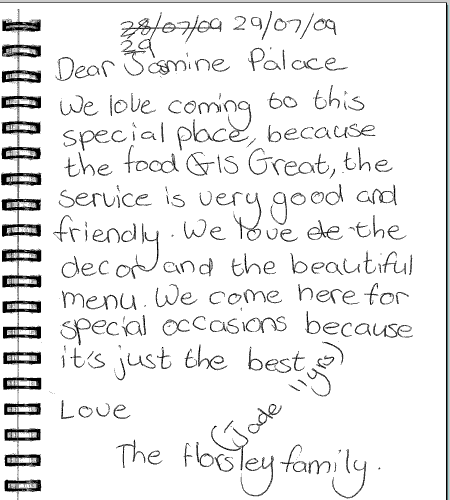 28/07/09 29/07/09
29
Dear Jasmine Palace
We love coming to this
special place, because
the food G is Great, the
service is very good and
friendly. We love de the
decor and the beautiful
menu. We come here for
special occasions because
it's just the best
Love
(Jade 11yrs)
The Horsley family.